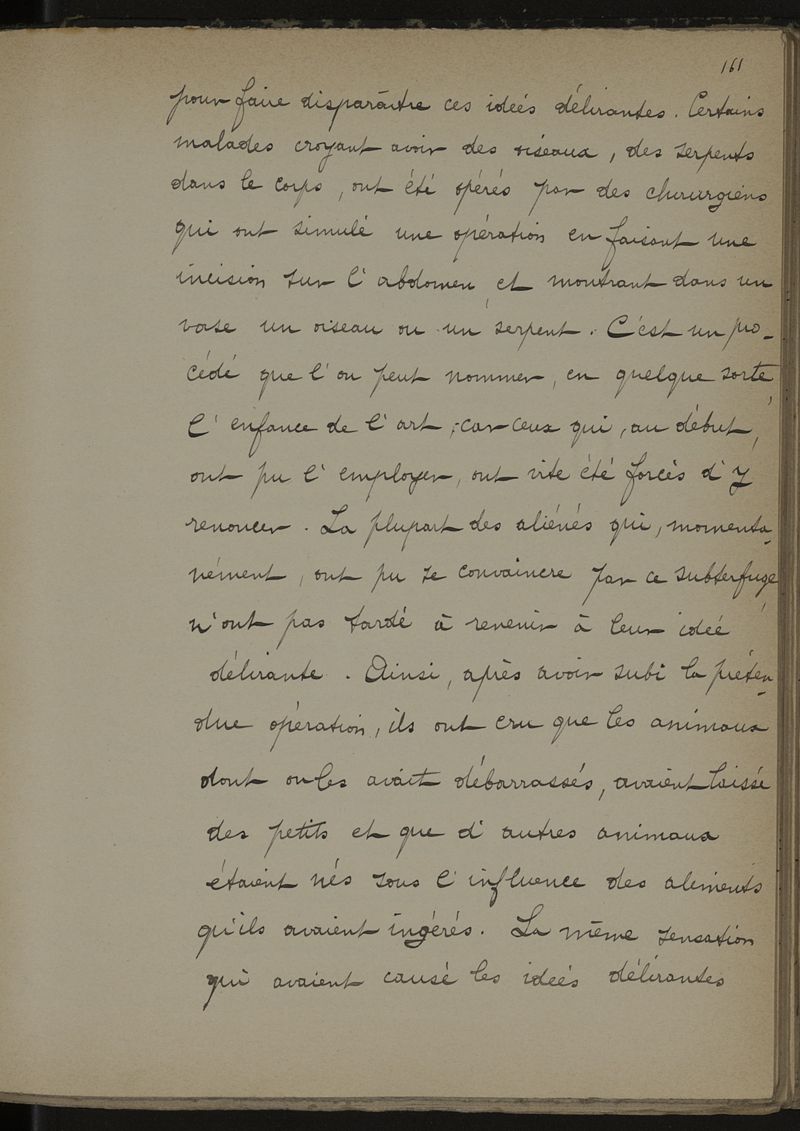 161
pour faire disparaître ces ideés délirantes. Certains
malades croyant avoir des oiseaux, des serpents
dans le corps, ont été opérés par des chirurgiens
qui ont simulé une opération en faisant une
incision sur l'abdomen et montrant dans un
vase un oiseau ou un serpent. C'est un pro-
cédé que l'on peut nommer, en quelque sorte,
l'enfance de l'art, car ceux qui, au début,
ont pu l'employer, ont vite été forcés d'y
renoncer. La plupart des aliénés qui, momenta-
nément, ont pu se convaincre par ce subterfuge,
n'ont pas tardé à revenir à leur ideé
délirante. Ainsi, après avoir subi la préten-
due opération, ils ont cru que les animaux
dont on les avait débarrassés, avaient laissé
des petits et que d'autres animaux
étaient nés sous l'influence des aliments
qu'ils avaient ingérés. La même sensation
qui avaient causé les ideés délirantes